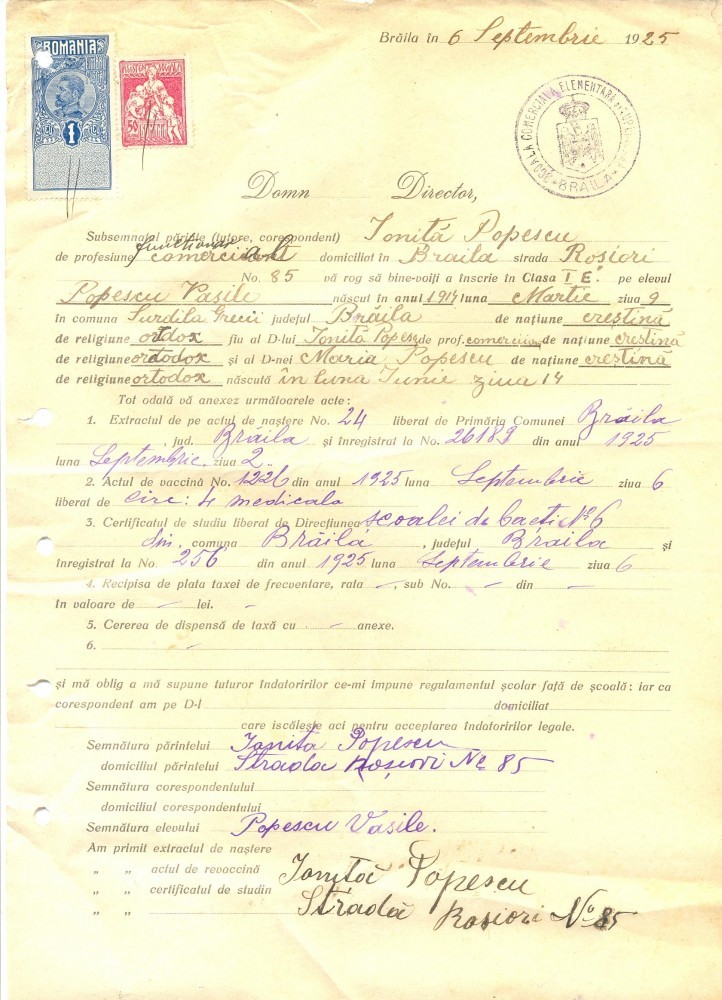 Brăila în 6 Septembrie 1925
ROMANIA
1
50
ȘCOALA COMERCIALĂ ELEMENTARĂ
BRĂILA
Domn Director,
Subsemnatul părinte (tutore, corespondent) Ioniță Popescu
de profesiune funcționar comercial domiciliat în Braila strada Roșiori
No. 85 vă rog să bine-voiți a înscrie în Clasa I E. pe elevul
Popescu Vasile născut în anul 1914 luna Martie ziua 9
în comuna Surdila Greci județul Brăila de națiune creștină
de religiune ortdox fiu al D-lui Ioniță Popesc de prof. comercian de națiune creștină
de religiune ortodox și al D-nei Maria Popescu de națiune creștină
de religiune ortodox născută în luna Iunie ziua 14
Tot odată vă anexez următoarele acte :
1. Extractul de pe actul de naștere No. 24 liberat de Primăria Comunei Brăila
, jud. Brăila și înregistrat la No. 26189 din anul 1925
luna Septembrie. ziua 2.
2. Actul de vaccină No. 1226 din anul 1925 luna Septembrie ziua 6
liberat de circ: 4 medicala
3. Certificatul de studiu liberat de Direcțiunea școalei de baeti No 6
din comuna Brăilă , județul Brăila și
înregistrat la No. 256 din anul 1925 luna Septembrie ziua 6
4. Recipisa de plata taxei de frecventare, rata -, sub No. - din -
în valoare de - lei. -
5. Cererea de dispensă de taxă cu - anexe.
6. -
și mă oblig a mă supune tuturor îndatoririlor ce-mi impune regulamentul școlar față de școală : iar ca
corespondent am pe D-l domiciliat
care iscălește aci pentru acceptarea îndatoririlor legale.
Semnătura părintelui Ioniță Popescu
domiciliul părintelui Strada Roșiori No 85
Semnătura corespondentului
domiciliul corespondentului
Semnătura elevului Popescu Vasile.
Am primit extractul de naștere
„ „ actul de revoccină Ioniță Popescu
„ „ certificatul de studin Stradă Rosiori No 85
„ „